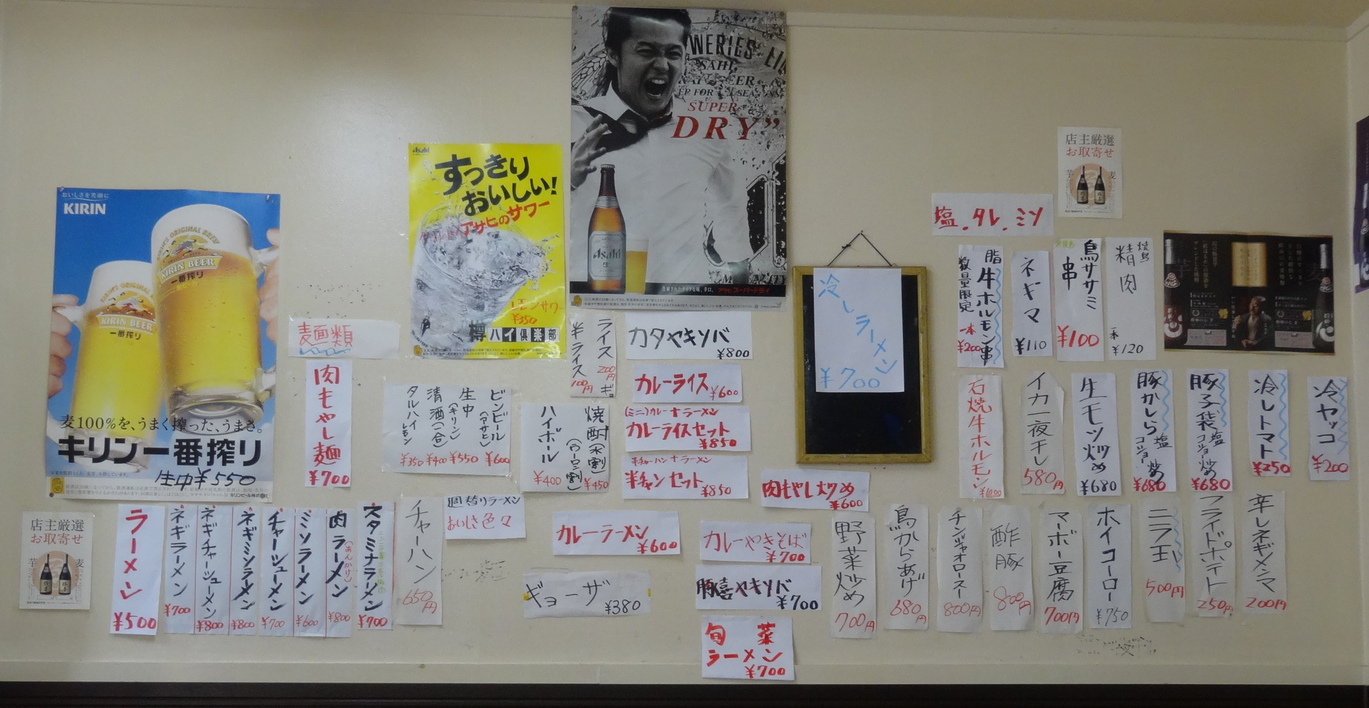 おいしさを笑顔に
KIRIN
ICHIBAN ORIGINAL BREW
KIRIN BEER
一番搾り
KIRIN BEER
一番搾り
麦100%を、うまく搾った、うまさ。
キリン一番搾り
生中¥550
店主厳選
お取寄せ
芋
麦
Asahi
すっきり
おいしい!
アサヒのサワー
¥350
樽ハイ倶楽部
SUPER
DRY”
Asahi
麺類
肉もやし麺
¥700
ビンビール
(アサヒ)
¥600
生中
(キリン)
¥550
清酒(一合)
¥400
タルハイ
レモン
¥350
ライス
200円
半ライス
100円
カタヤキソバ
¥800
カレーライス
¥600
(ミニ)カレー+ラーメン
カレーライスセット
¥850
半チャーハン+ラーメン
半チャンセット
¥850
焼酎(水割)
¥450
ハイボール
¥400
冷しラーメン
¥700
肉もやし炒め
¥600
ラーメン
¥500
ネギラーメン
¥700
ネギチャーシューメン
¥800
ネギミソラーメン
¥800
チャーシューメン
¥700
ミソラーメン
¥600
肉ラーメン
¥800
スタミナラーメン
¥700
チャーハン
650円
カレーラーメン
¥600
ギョーザ
¥380
カレーやきそば
¥700
¥700
旬菜
ラーメン
¥700
塩.タレ.ミソ
店主厳選
お取寄せ
芋
麦
脂牛ホルモン串
数量限定
一本
¥200
ネギマ
¥110
鳥ササミ
串
¥100
精肉
一本
¥120
石焼牛ホルモン
イカ一夜干し
580円
生モツ炒め
¥680
豚かしら塩
コショー炒め
¥680
豚子袋塩
コショー炒め
¥680
冷しトマト
¥250
冷ヤッコ
¥200
野菜炒め
700円
鳥からあげ
680円
チンジャオロース
800円
酢豚
800円
マーボー豆腐
700円
ホイコーロー
¥750
ニラ玉
500円
フライドポテト
250円
辛しネギメンマ
200円